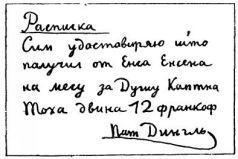 Расписка
Сим удостовиряю што
получил от Енса Енсена
на месу за Душу Каптна
Тоха двина 12 франкоф
Пат Дингль